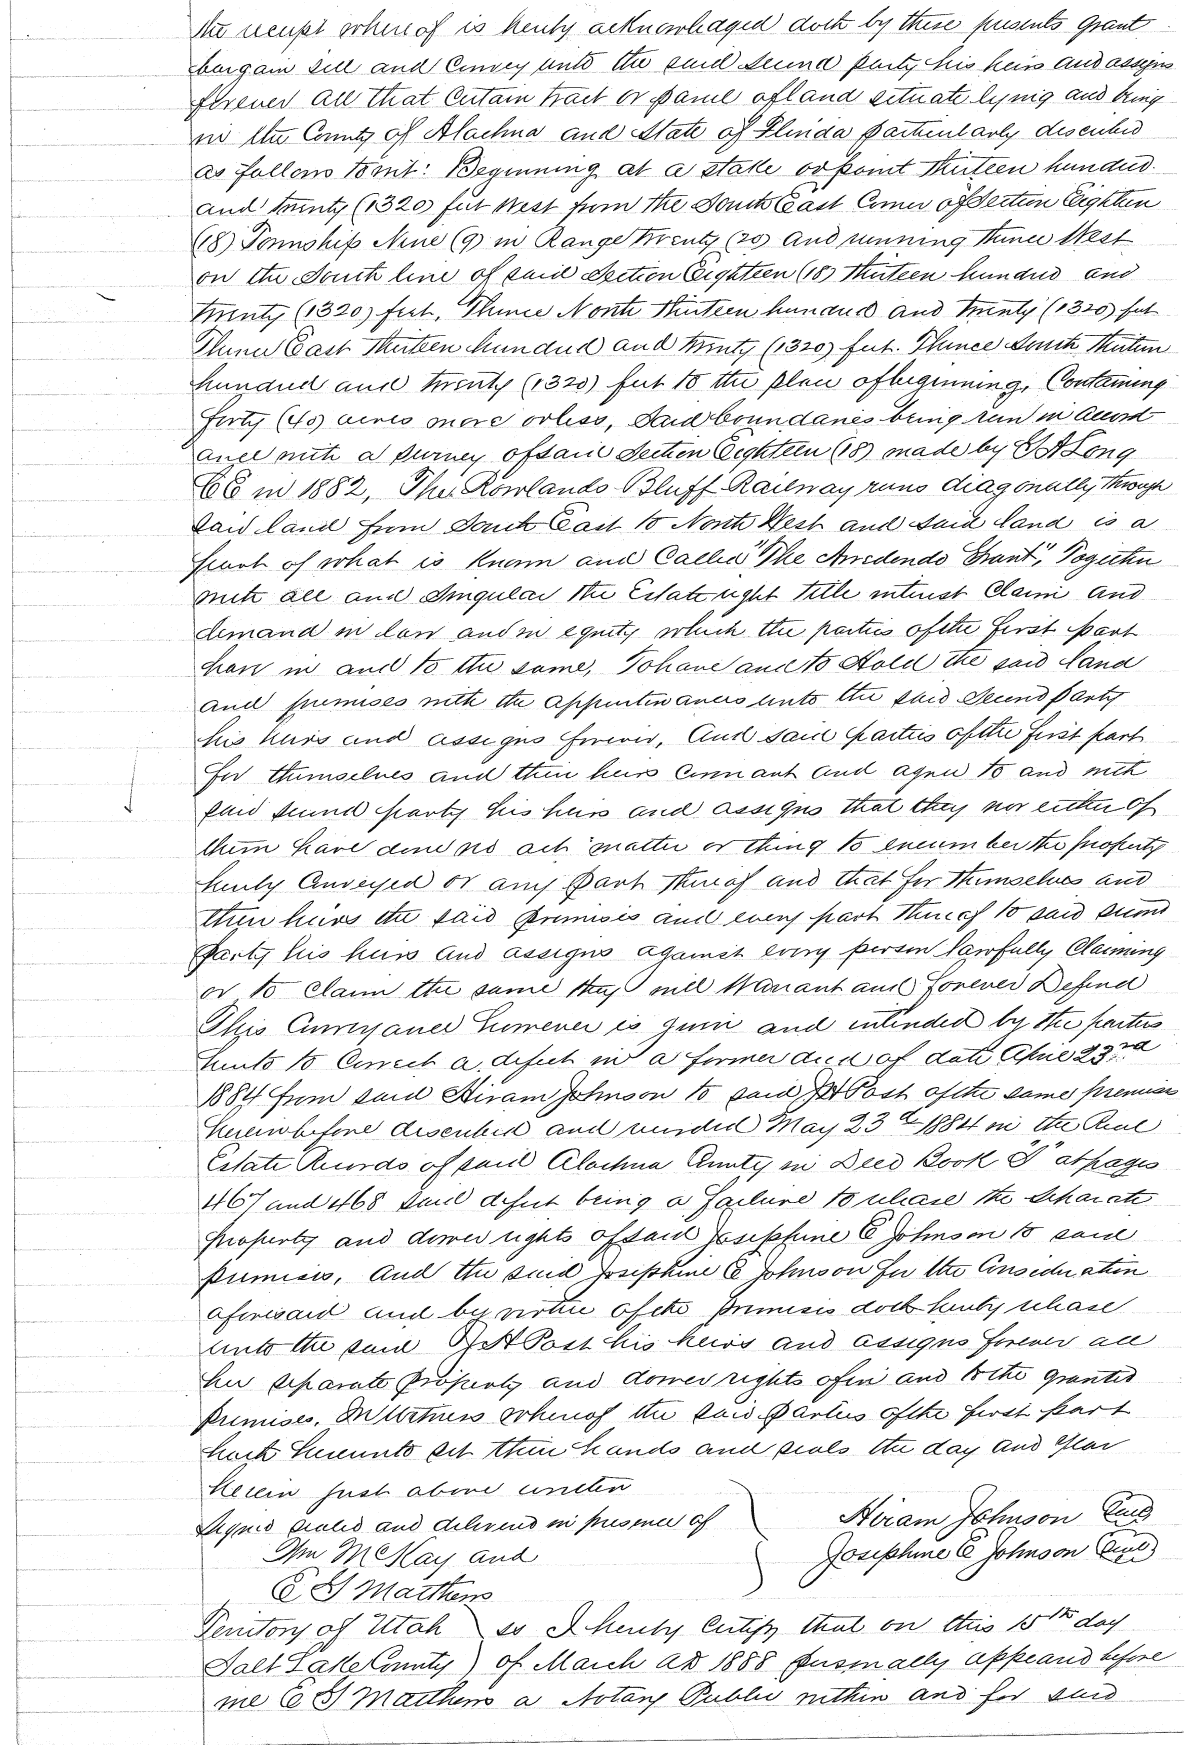 the receipt whereof is hereby acknowledged doth by these presents grant
bargain sell and Convey unto the said second party his heirs and assigns
forever All that Certain tract or parcel of land situate lying and being
in the County of Alachua and State of Florida particularly described
as follows towit: Beginning at a stake or point thirteen hundred
and twenty (1320) feet West from the South East Corner of Section Eighteen
(18) Township Nine (9) in Range twenty (20) and running thence West
on the South line of said Section Eighteen (18) thirteen hundred and
twenty (1320) feet, Thence North thirteen hundred and twenty (1320) feet
Thence East thirteen hundred and twenty (1320) feet. Thence South thirteen
hundred and twenty (1320) feet to the place of beginning, Containing
forty (40) acres more or less, Said boundaries being run in accord
ance with a survey of said Section Eighteen (18) made by Long
CE in 1882, The Rowlands Bluff Railway runs diagonally through
said land from South East to North West and said land is a
part of what is known and Called "The Arredendo Grant", Together
with all and Singular the Estate right title interest Claim and
demand in law and in equity which the parties of the first part
have in and to the same, To have and to Hold the said land
and premises with the appurtenances unto the said Second Party
his heirs and assigns forever, And said parties of the first part
for themselves and their heirs Covenant and agree to and with
said second party his heirs and assigns that they nor either of
them have done no act matter or thing to encumber the property
hereby Conveyed or any part thereof and that for themselves and
their heirs the said premises and every part thereof to said second
Party his heirs and assigns against every person lawfully Claiming
or to Claim the same they will Warrant and forever Defend
This Conveyance however is given and intended by the parties
hereto to Correct a defect in a former deed of date April 23rd
1884 from said Hiram Johnson to said Post of the same premises
hereinbefore described and recorded May 23d 1884 in the Real
Estate Records of said Alachua County in Deed Book at pages
467 and 468 said defect being a failure to release the separate
property and dower rights of said Josephine E Johnson to said
premises, And the said Josephine E Johnson for the Consideration
aforesaid and by virtue of the premises doth hereby release
unto the said Post his heirs and assigns forever all
her separate property and dower rights of in and to the granted
premises. In Witness whereof the said parties of the first part
hath hereunto set their hands and seals the day and year
herein just above written
Signed sealed and delivered in presence of
Hiram Johnson Seal
Wm McKay and
Josephine E Johnson Seal
E G Matthews
Territory of Utah ss I hereby Certify that on this 15th day
Salt Lake County of March AD 1888 personally appeared before
me E G Matthews a Notary Public within and for said